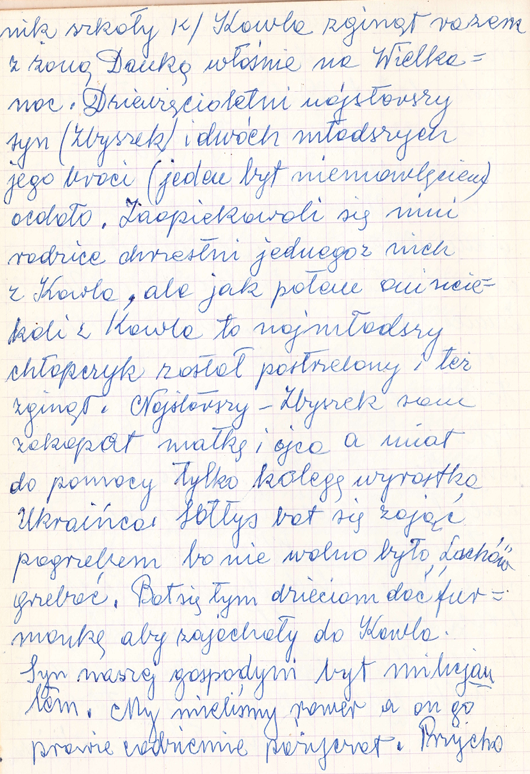 nik szkoły k/ Kowla zginął razem
z żoną Danką właśnie na Wielka=
noc. Dziewięcioletni najstarszy
syn (Zbyszek) i dwóch młodszych
jego braci (jeden był niemowlęciem)
ocalało. Zaopiekowali się nimi
rodzice chrzestni jednego z nich
z Kowla, ale jak potem oni ucie=
kali z Kowla to najmłodszy
chłopczyk został postrzelony i też
zginął. Najstarszy – Zbyszek sam
zakopał matkę i ojca a miał
do pomocy tylko kolegę wyrostka
Ukraińca. Sołtys bał się zająć
pogrzebem bo nie wolno było „Lachów”
grzebać. Bał się tym dzieciom dać fur=
mankę aby zajechały do Kowla.
Syn naszej gospodyni był milicjan
tem. My mieliśmy rower a on go
prawie codziennie pożyczał. Przycho